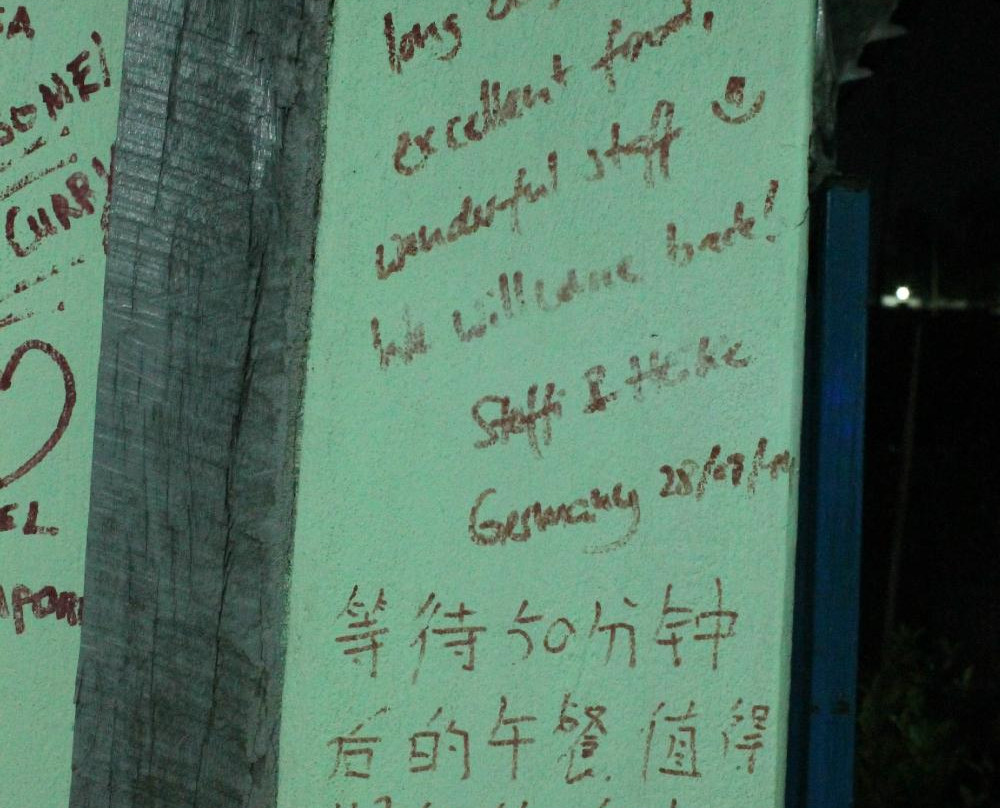 CURRY
long
excellent food,
wonderful staff
We will come back!
Steffi & Heike
Germany 28/07/
等待50分钟
后的午餐值得